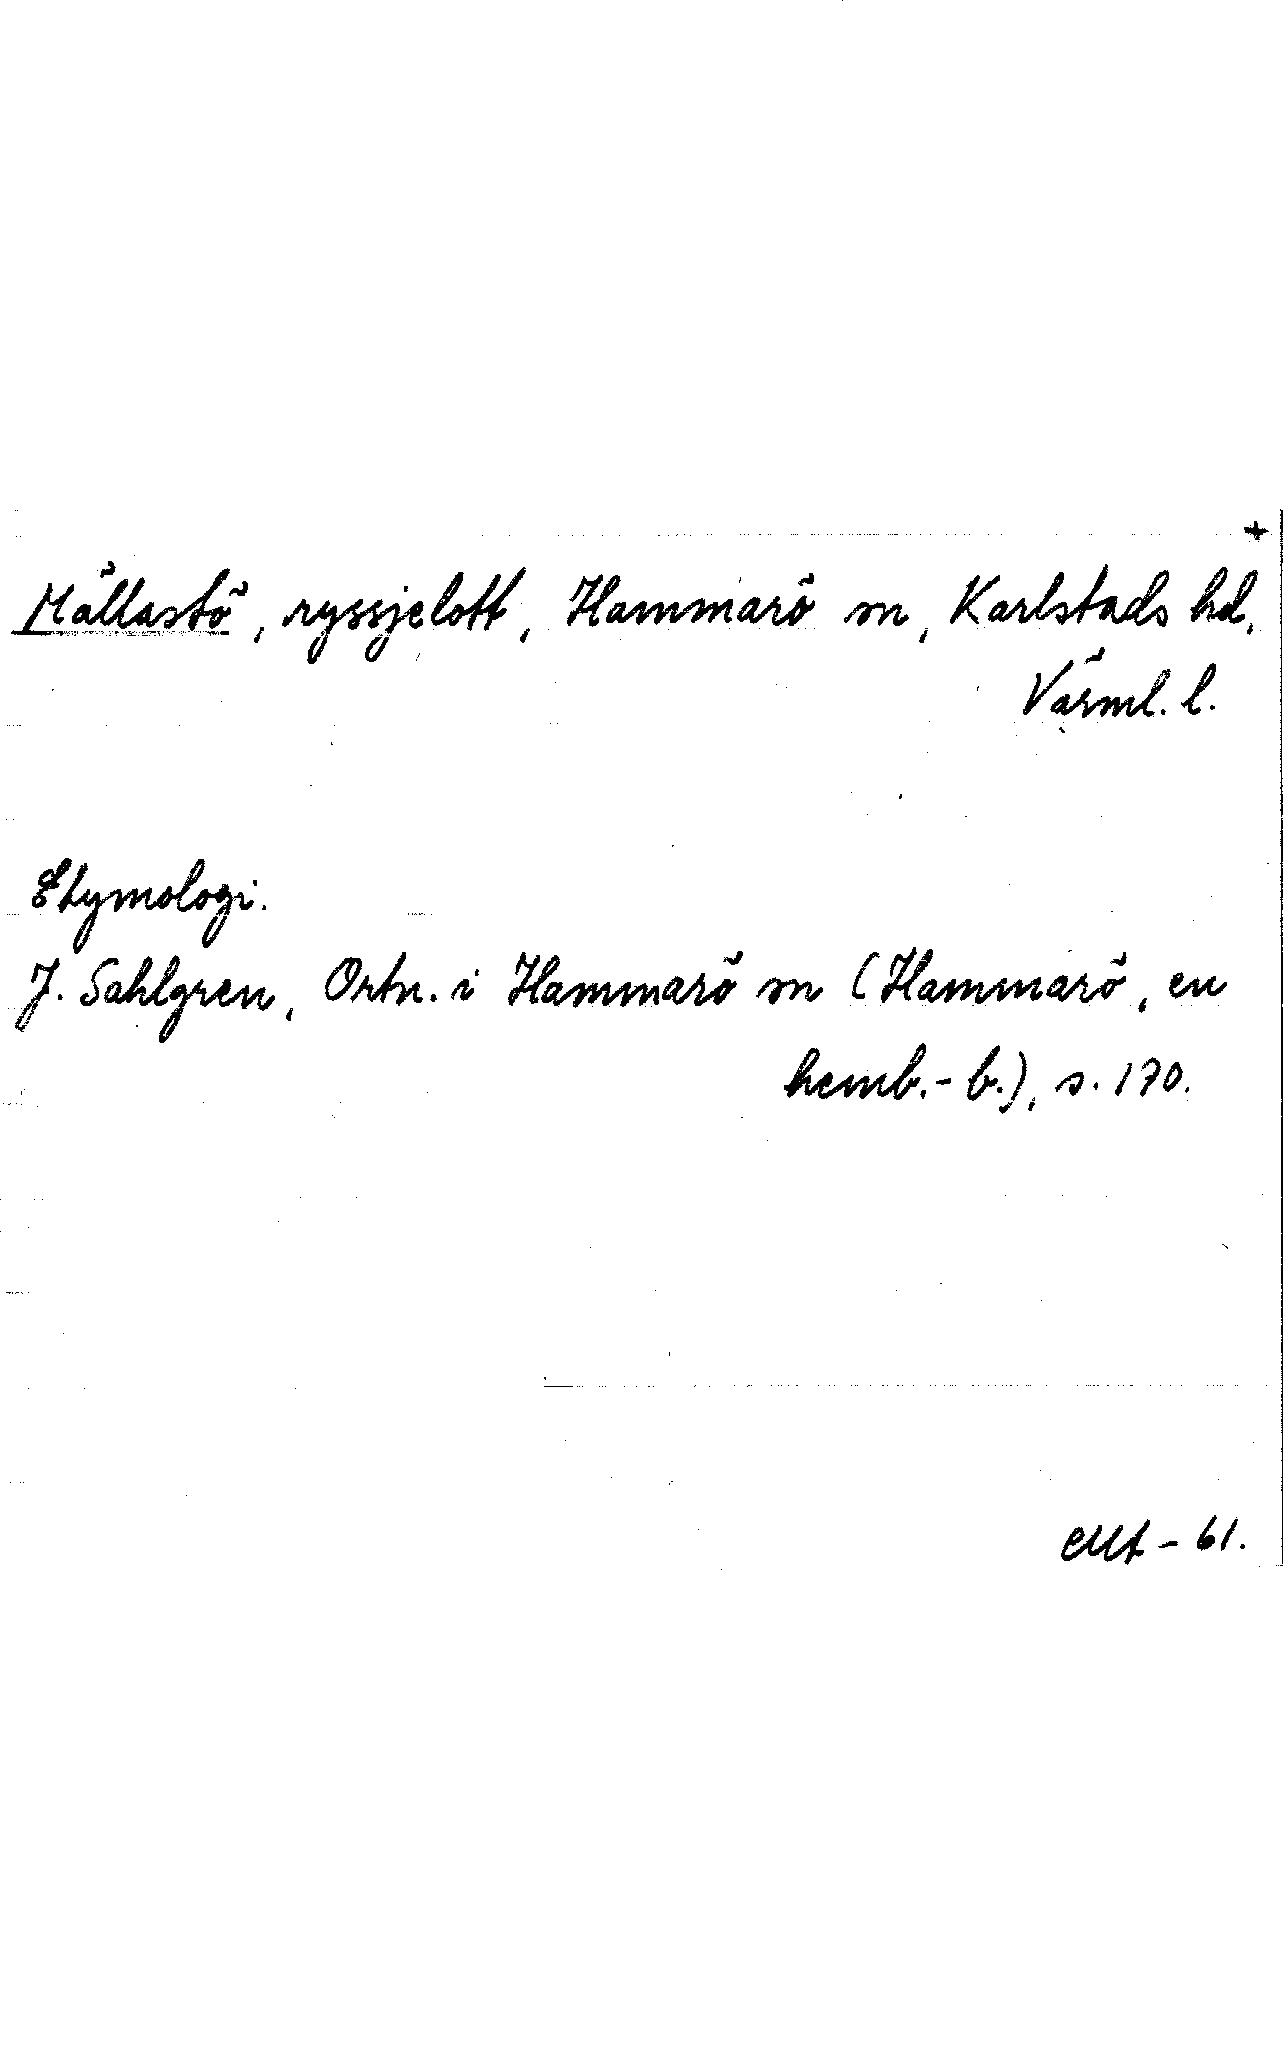 +
Mällastö, ryssjelott, Hammarö sn, Karlstads hd,
Värml. l.
Etymologi.
J. Sahlgren, Ortn. i Hammarö sn (Hammarö, en
hemb.-b.), s. 170.
EMt - 61.